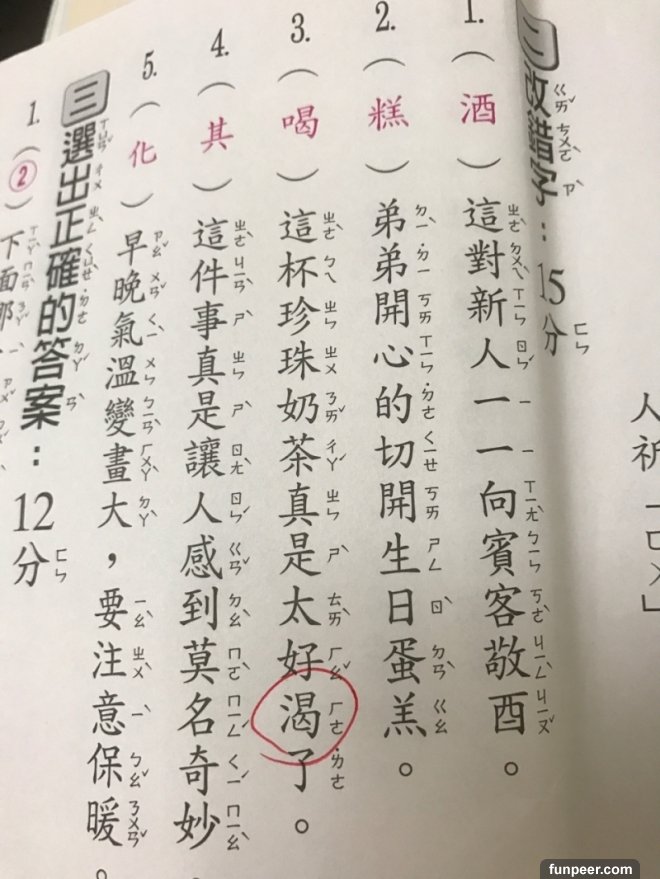 人祈「ㄈㄨ」
二 改錯字：15分
1.（酒）這對新人一一向賓客敬酉。
2.（糕）弟弟開心的切開生日蛋羔。
3.（喝）這杯珍珠奶茶真是太好渴了。
4.（其）這件事真是讓人感到莫名奇妙。
5.（化）早晚氣溫變畫大，要注意保暖。
三 選出正確的答案：12分
1.（②）下面那
funpeer.com